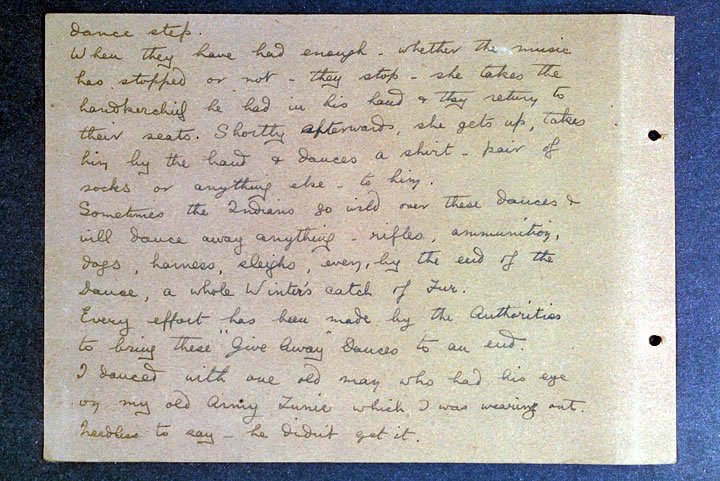 dance step.
When they have had enough - whether the music
has stopped or not - they stop - she takes the
handkerchief he had in his hand & they return to
their seats. Shortly afterwards, she gets up, takes
him by the hand & dances a shirt - pair of
socks or anything else - to him.
Sometimes the Indians go wild over these dances &
will dance away anything - rifles, ammunition,
dogs, harness, sleighs, even, by the end of the
Dance, a whole Winter's catch of Fur.
Every effort has been made by the Authorities
to bring these "Give Away" Dances to an end.
I danced with one old man who had his eye
on my old Army Tunic which I was wearing out.
Needless to say - he didn't get it.